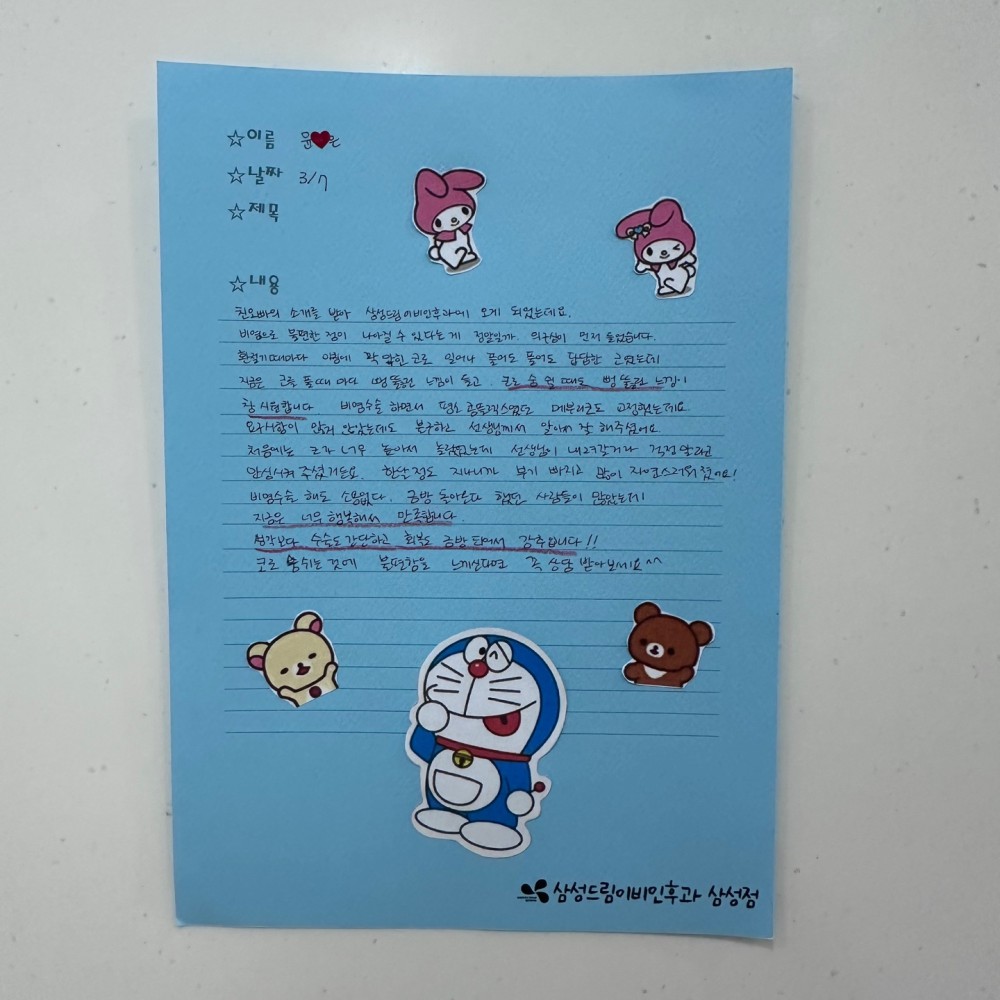 ☆이름 윤♥은
☆날짜 3/7
☆제목
☆내용
친오빠의 소개를 받아 삼성드림이비인후과에 오게 되었는데요.
비염으로 불편한 점이 나아질 수 있다는 게 정말일까 의구심이 먼저 들었습니다.
환절기때마다 아침에 꽉 막힌 코로 일어나 풀어도 풀어도 답답한 코였는데
지금은 코를 풀때 마다 뻥 뚫린 느낌이 들고. 코로 숨 쉴 때도 뻥 뚫린 느낌이
참 시원합니다 비염수술 하면서 평소 콤플렉스였던 매부리코도 교정했는데요
요구사항이 많지 않았는데도 불구하고 선생님께서 알아서 잘 해주셨어요
처음에는 코가 너무 높아서 놀랐었는데 선생님이 내려갈거라 걱정 말라고
안심시켜 주셨거든요. 한달 정도 지나니까 부기 빠지고 많이 자연스러워 졌어요!
비염수술 해도 소용없다. 금방 돌아온다 했던 사람들이 많았는데
지금은 너무 행복해서 만족합니다.
생각보다 수술도 간단하고 회복도 금방 되어서 강추입니다!!
코로 숨쉬는 것에 불편함을 느끼신다면 꼭 상담 받아보세요^^
삼성드림이비인후과 삼성점